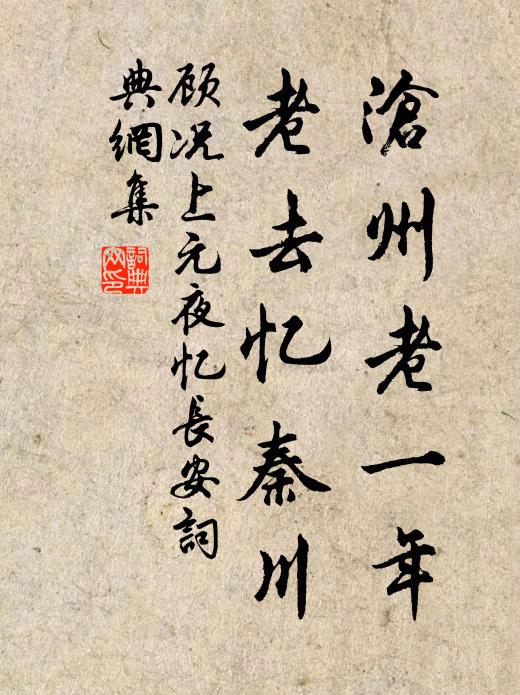 滄州老一年
老去忆秦川
顾况上元夜忆長安詞
典網集
詞典網印